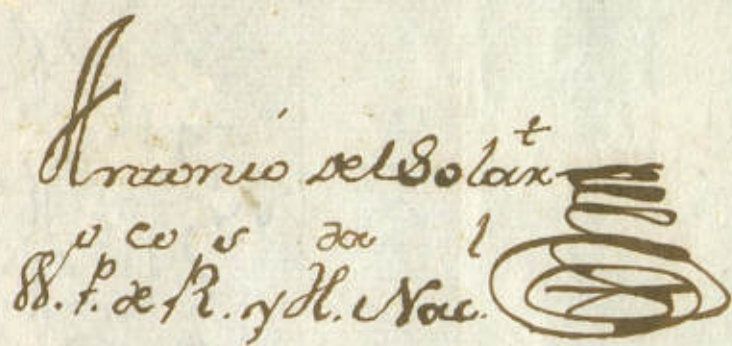 Antonio del Solar
SS.º P.co de R.s y H.da Nac.l